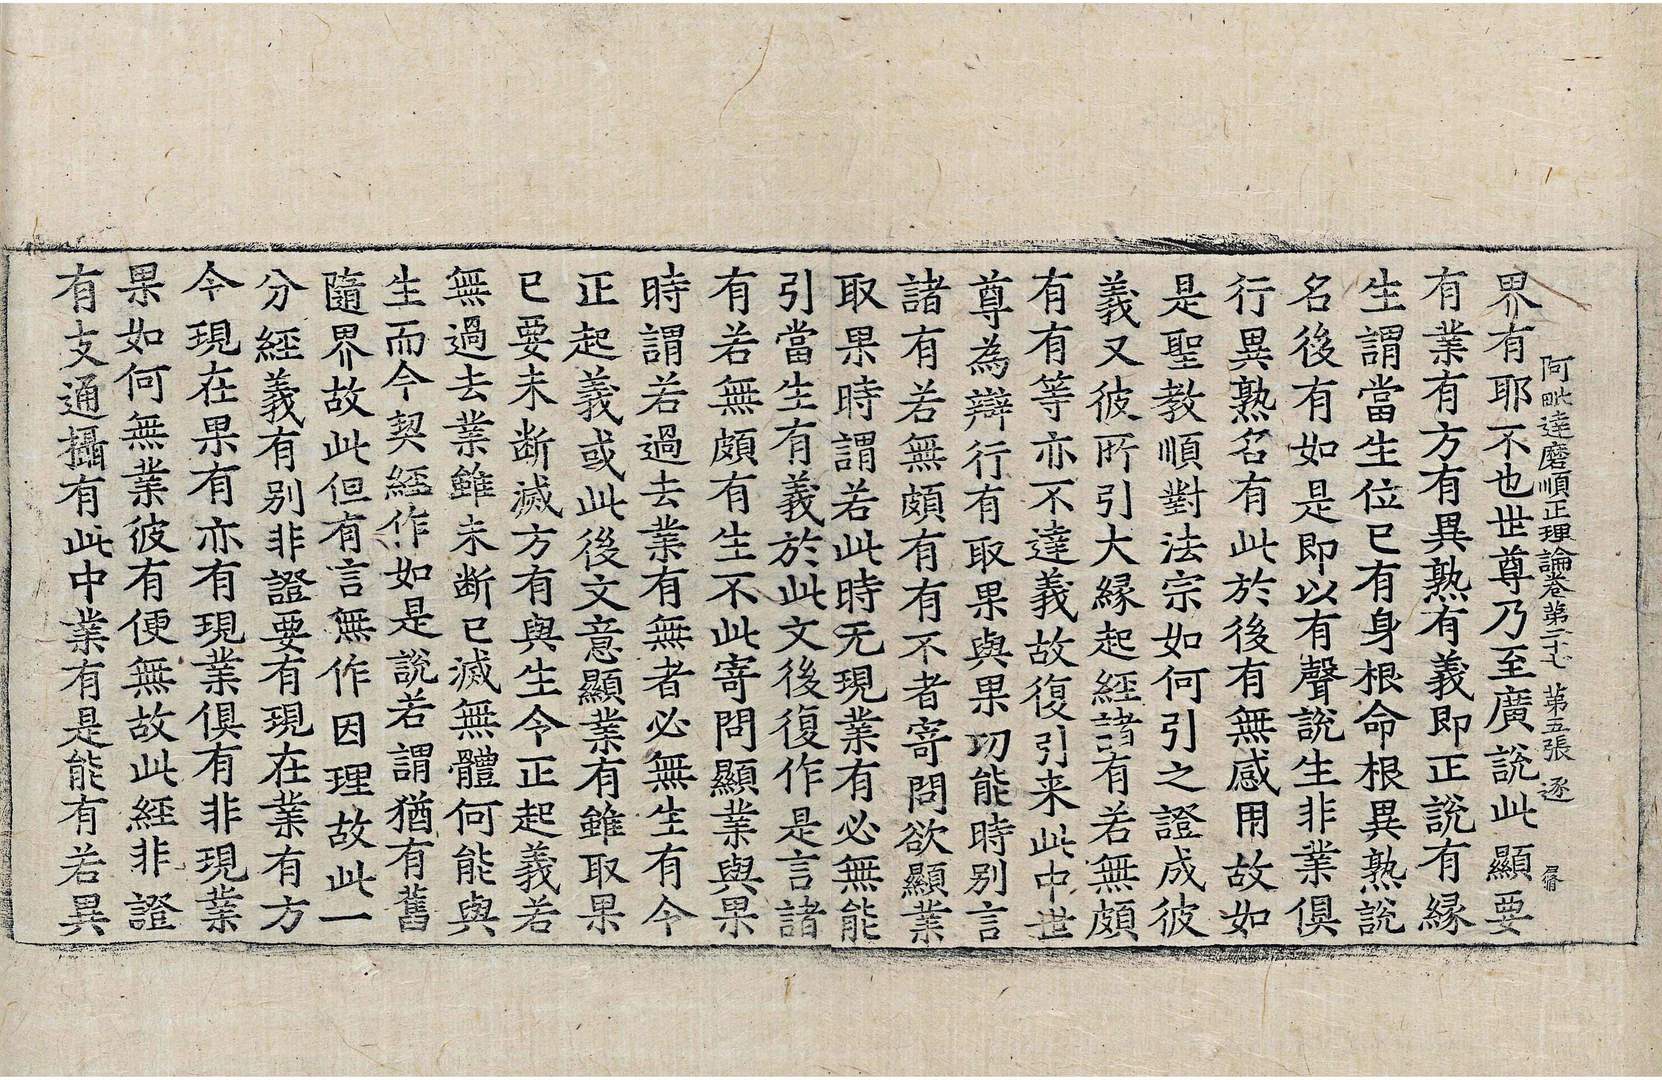 阿毗達磨順正理論卷第二十七 第五張 逐
界有耶不也世尊乃至廣說此顯要
有業有方有異熟有義即正說有緣
生謂當生位已有身根命根異熟說
名後有如是即以有聲說生非業俱
行異熟名有此於後有無感用故如
是聖教順對法宗如何引之證成彼
義又彼所引大緣起經諸有若無頗
有有等亦不達義故復引来此中世
尊為辯行有取果與果功能時別言
諸有若無頗有有不者寄問欲顯業
取果時謂若此時无現業有必無能
引當生有義於此文後復作是言諸
有若無頗有生不此寄問顯業與果
時謂若過去業有無者必無生有今
正起義或此後文意顯業有雖取果
已要未断滅方有與生令正起義若
無過去業雖未断已滅無體何能與
生而今契經作如是說若謂猶有舊
隨界故此但有言無作因理故此一
分經義有别非證要有現在業有方
今現在果有亦有現業俱有非現業
果如何無業彼有便無故此經非證
有支通攝有此中業有是能有若異